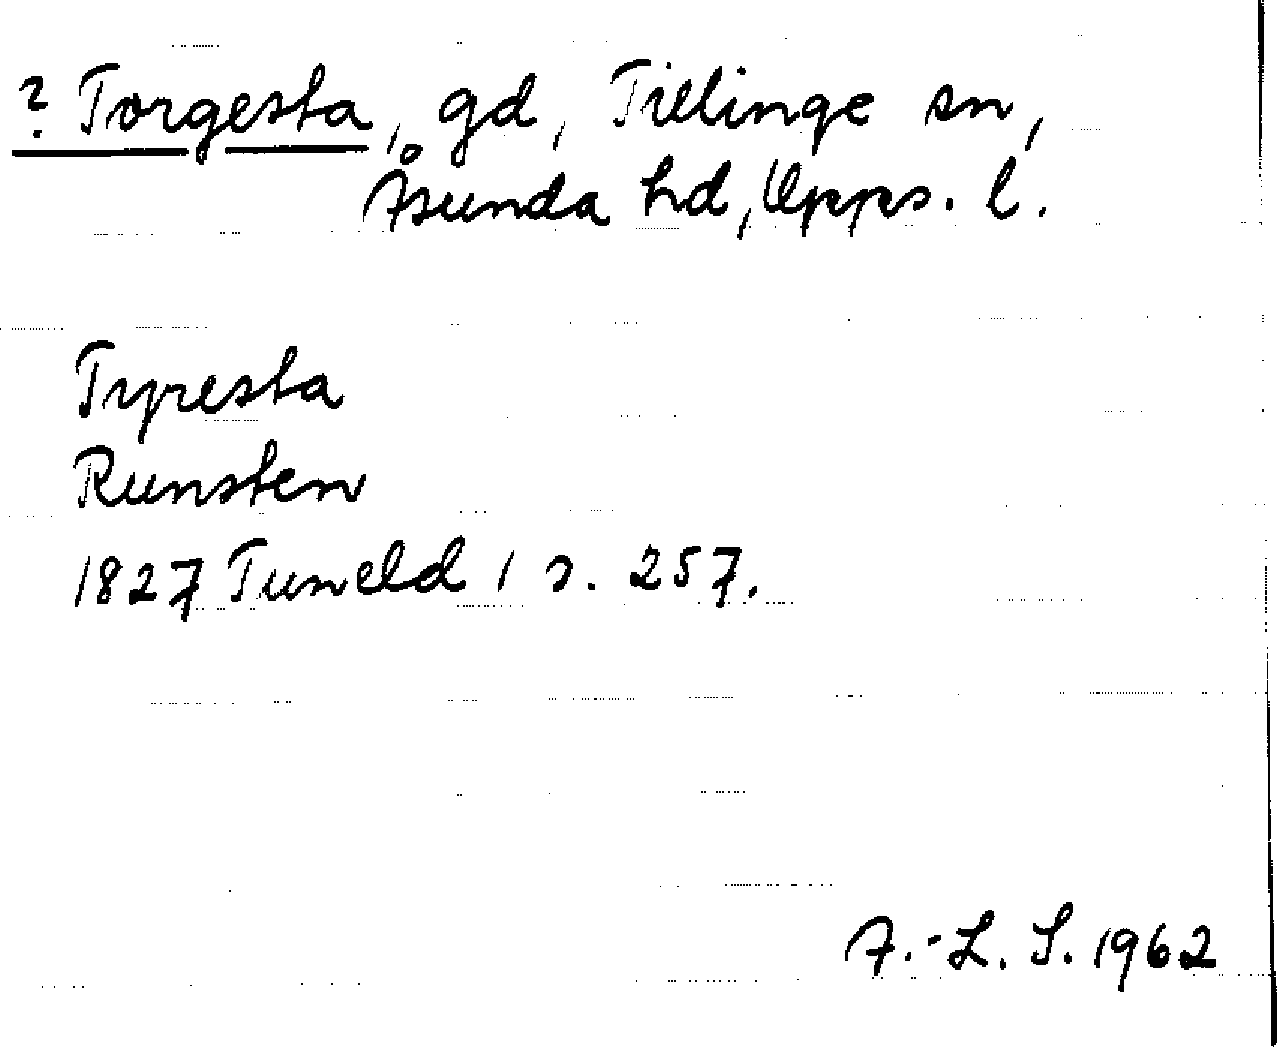 ? Torgesta, gd, Tillinge sn,
Åsunda hd, Upps. l.
Tyresta
Runsten
1827 Tuneld 1 s. 257.
A.-L. S. 1962